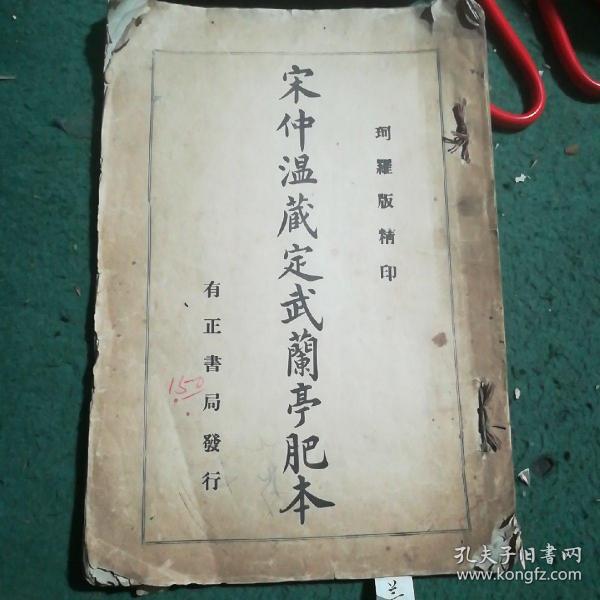 珂羅版精印
宋仲温藏定武蘭亭肥本
有正書局發行
150
兰
孔夫子旧書网
www.kongfz.com